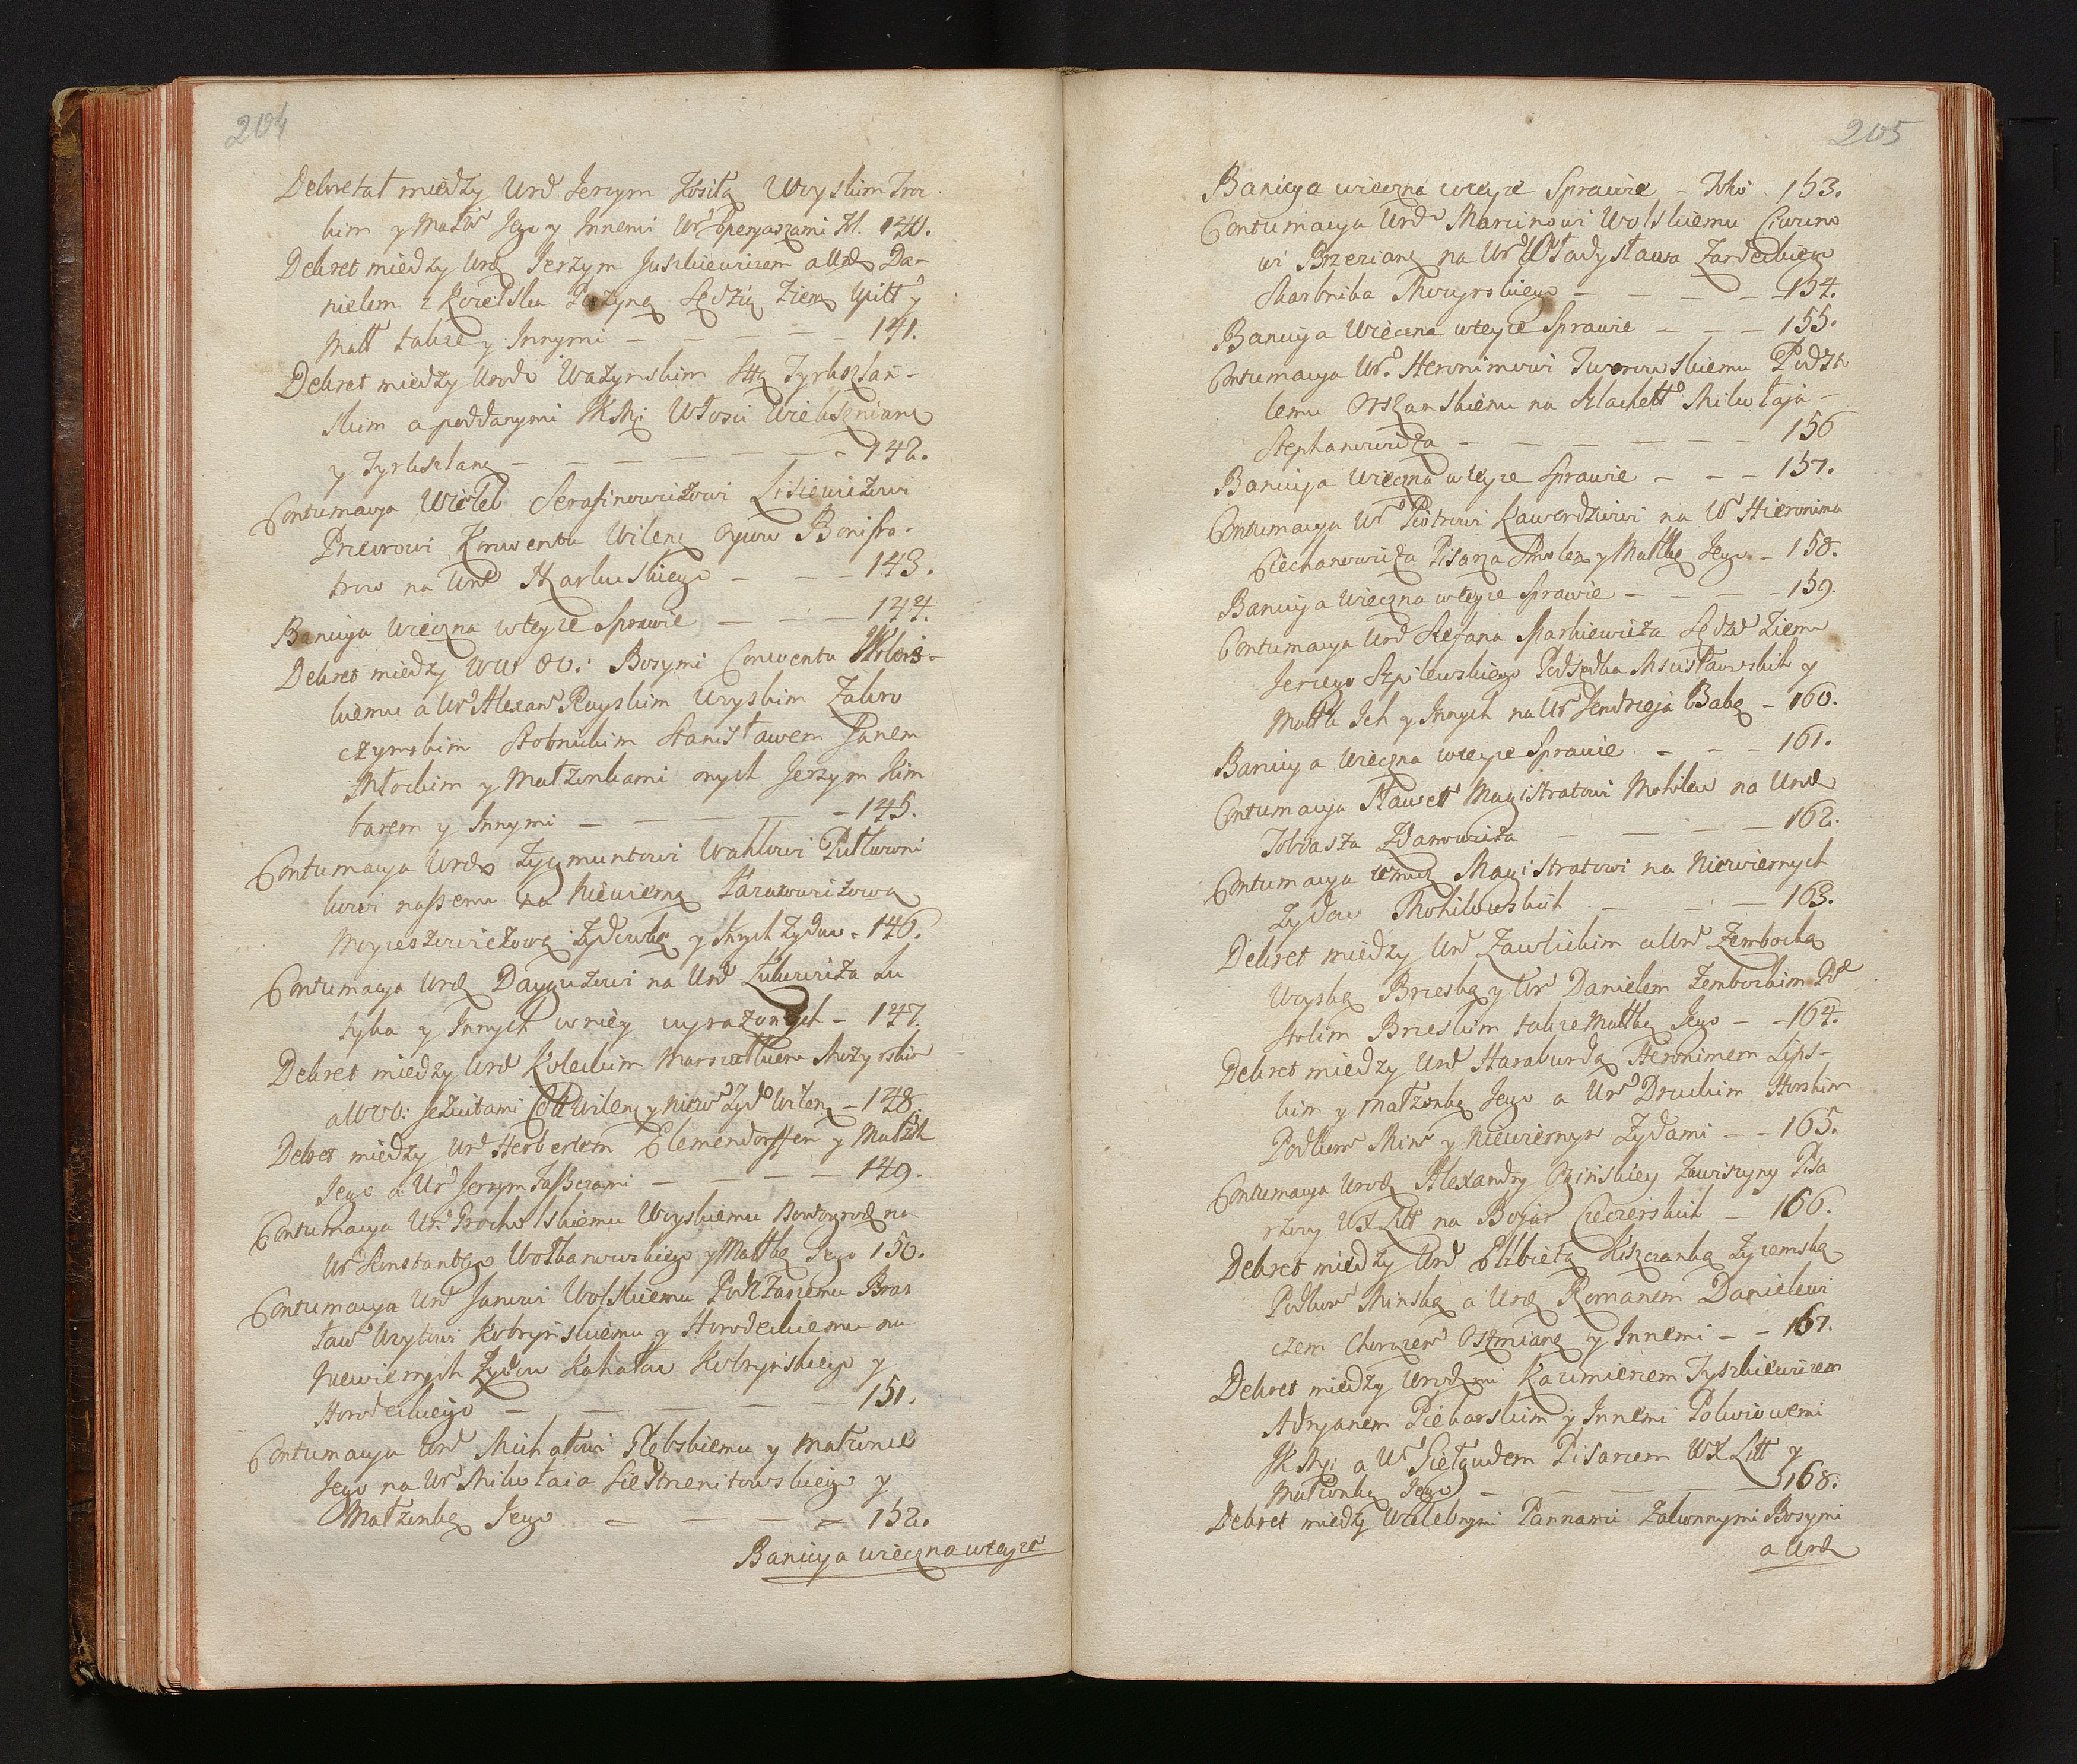 204
Dekretał między Urd Jerzym Zositą Woyskim Troc
kim y Małż Jego y Innemi Ur Operyaszami Fol. 140.
Dekret miedzy Urdz Jerzym Juszkiewiczem a Urdz Da-
nielem z Kozielska Puzyną Sędzią Ziem Upitt y
Małż także y Innymi — — — — 141.
Dekret miedzy Urodz Ważynskim Sttą Tyrkszlań-
skim a poddanymi JKMści Włości Wiekszniane
y Tyrkszlane — — — — — — 142.
Contumacya Wieleb Serafinowiczowi Lisiewiczowi
Przeorowi Konwentu Wilen Oycow Bonifra-
trow na Urd Szarkuskiego — — — 143.
Banicya Wieczna wteyze Sprawie — — — 144.
Dekret miedzy WW OO: Bosymi Conventu
kiemu a Ur Alexan Ruyskim Woyskim Zakro
czymskim Stobnickim Stanisławem Janem
Młockim y Małzonkami onych Jerzym Kim
barem y Innymi — — — — — 145.
Contumacya Urodz Zygmuntowi Wahlowi Pułkowni
kowi naszemu na Niewierną Łazarowiczową
Moyzeszowiczową Żydowkę y Innych Zydow - 146.
Contumacya Urdz Dauguzowi na Urd Łukowicza Łu
kyba y Innych w niey wyrażonych — 147.
Dekret miedzy Urd Koleckim Marszałkiem Mozyrskim
a WOO: Jezuitami Coll Wilen y Niew Żyd Wilen — 148
Dekret miedzy Urd Herbertem Elemendorffen y Małżk
Jego a Ur Jerzym Taszczami — — — — 149.
Contumacya Ur. Grocholskiemu Woyskiemu Nowogrodz na
Ur Konstantego Wołkanowskiego y Małżkę Jego 150.
Contumacya Urd Janowi Wolskiemu Podczaszemu Bras
ław Woytowi Kobryńskiemu y Horodeckiemu na
Niewiernych Zydow Kahałow Kobryńskiego y
Horodeckiego — — — — — 151.
Contumacya Urd Michałowi Głębskiemu y Małzonce
Jego na Ur Mikołaia Siestrzenitowskiego y
Małzonkę Jego — — — — 152.
Banicya wieczna wteyze
205
Banicya wieczna wteyze Sprawie - Folio 153.
Contumacya Urdz Marcinowi Wolskiemu Ciwuno
wi Brzeziane na Ur Władysława Zardeckiego
Skarbnika Mozyrskiego — — — — 154.
Banicya Wieczna wteyze Sprawie — — — 155.
Contumacya Ur. Heronimowi Tworowskiemu Podsto
lemu Orszanskiemu na Szlachett Mikołaja-
Stephanowicza — — — — — — 156
Banicya Wieczna wteyze Sprawie — — — 157.
Contumacya Ur Piotrowi Kawerdziowi na Ur Hieronima
Ciechanowicza Pisarza Smolen y Małżkę Jego - 158.
Banicya Wieczna wteyze Sprawie — — — — 159.
Contumacya Urd Stefana Markiewicza Sędzi Ziem
Jerzego Szpilewskiego Podsędka Mscisławskich y
Małżk Ich y Innych na Ur Jendrzeja Babę - 160.
Banicya Wieczna wteyze Sprawie — — — 161.
Contumacya Sławett Magistratowi Mohilew na Urodz
Tobiasza Zdanowicza — — — — 162.
Contumacya temuż Magistratowi na Niewiernych
Zydow Mohilowskich — — — 163.
Dekret miedzy Urd Zawlickim a Urd Zembocką
Woyską Brzeską y Ur Danielem Zembockim Pod
stolim Brzeskim także Małżkę Jego — — 164.
Dekret miedzy Urd Haraburdą Heronimem Lips-
kim y Małzonką Jego a Ur Druckim Horskim
Podkom Min y Niewiernym Zydami — — 165.
Contumacya Urodz Alexandry Ogińskiey Zawiszyny Pisa
rzowy WXLitt na Bojar Cieczerskich — 166.
Dekret miedzy Urd Elzbietą Kiszczanką Zyzemską
Podkom Minską a Urdz Romanem Danielewi
czem Chorązem Oszmiane y Innemi — — 167.
Dekret miedzy Urodzmi Kazimierzem Tyszkiewiczem
Adryanem Piekarskim y Innemi Polwiowemi
JKMści a Ur Giełgudem Pisarzem WX Litt y
Małzonką Jego — — — — — 168.
Dekret miedzy Wielebnymi Pannami Zakonnymi Bosymi
a Urdz